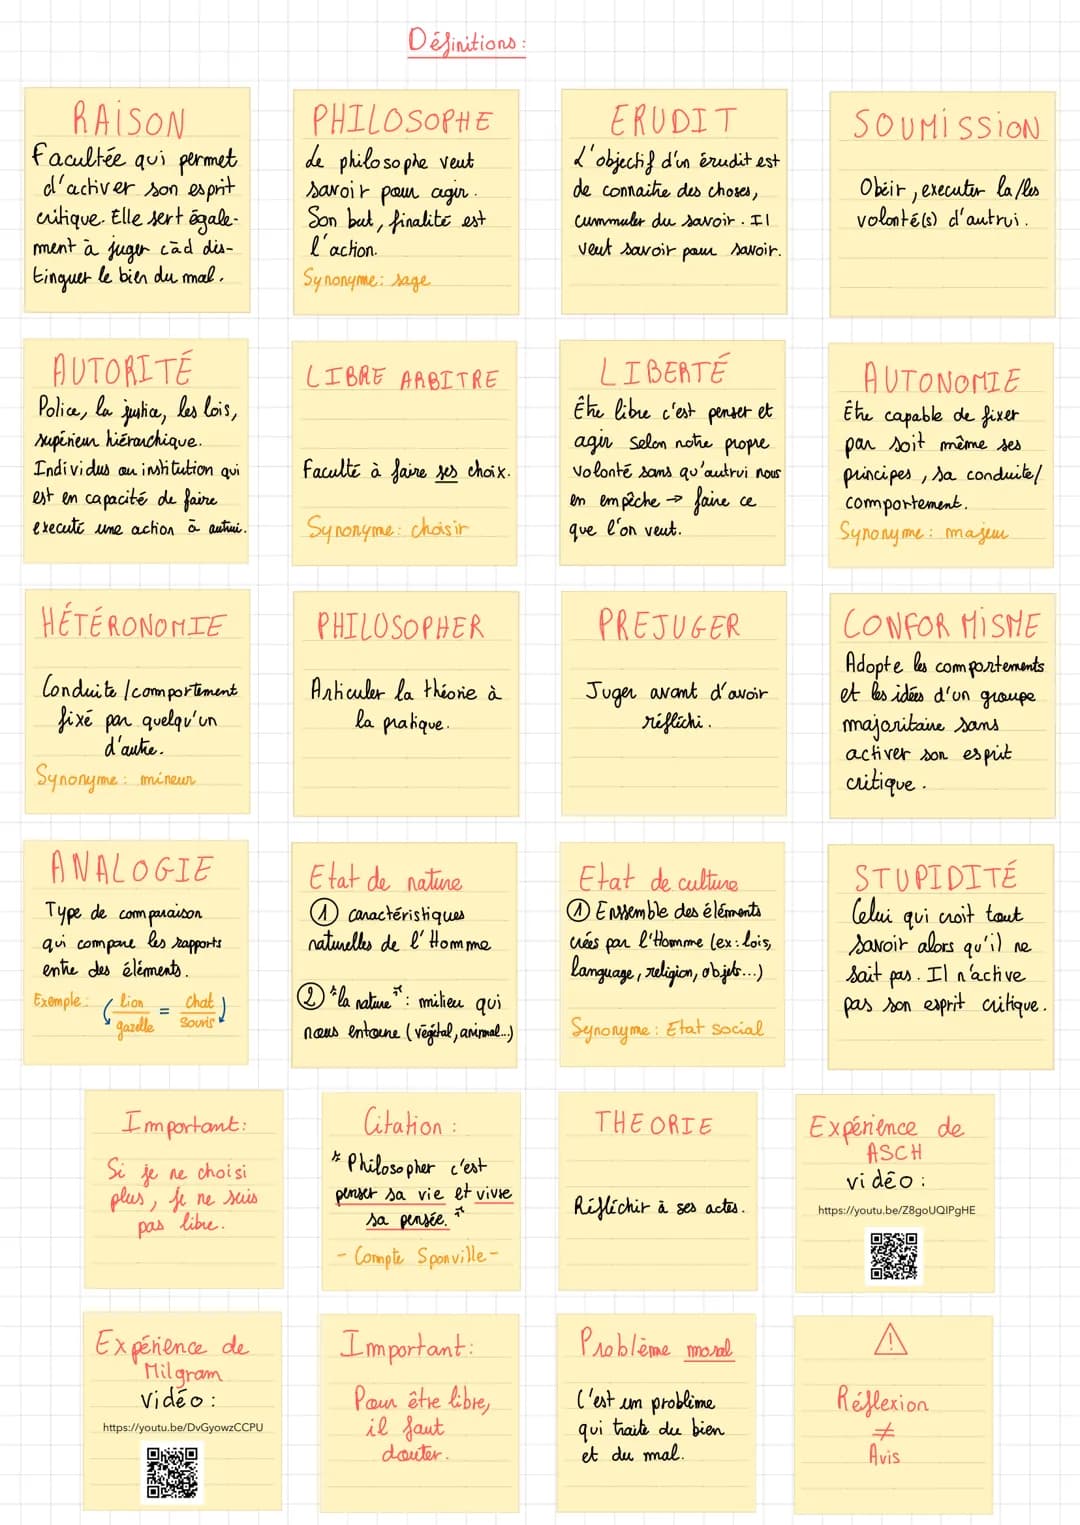 Définitions :
RAISON
Facultée qui permet
d'activer son esprit
critique. Elle sert égale-
ment à juger càd dis-
tinguer le bien du mal.
PHILOSOPHE
Le philosophe veut
savoir pour agir.
Son but, finalité est
l'action.
Synonyme : sage
ERUDIT
L'objectif d'un érudit est
de connaitre des choses,
cummuler du savoir. Il
veut savoir pour savoir.
SOUMISSION
Obéir, executer la/les
volonté(s) d'autrui.
AUTORITÉ
Police, la justice, les lois,
supérieur hiérarchique.
Individus ou institution qui
est en capacité de faire
executé une action à autrui.
LIBRE ARBITRE
Faculté à faire ses choix.
Synonyme : choisir
LIBERTÉ
Être libre c'est penser et
agir selon notre propre
volonté sans qu'autrui nous
en empêche → faire ce
que l'on veut.
AUTONOMIE
Être capable de fixer
par soit même ses
principes, sa conduite/
comportement.
Synonyme : majeur
HÉTÉRONOMIE
Conduite / comportement
fixé par quelqu'un
d'autre.
Synonyme : mineur
PHILOSOPHER
Articuler la théorie à
la pratique.
PREJUGER
Juger avant d'avoir
réfléchi.
CONFORMISME
Adopte les comportements
et les idées d'un groupe
majoritaire sans
activer son esprit
critique.
ANALOGIE
Type de comparaison
qui compare les rapports
entre des éléments.
Exemple : lion = chat
gazelle souris
Etat de nature
① caractéristiques
naturelles de l'Homme
② "la nature" : milieu qui
nous entoure (végétal, animal...)
Etat de culture
① Enssemble des éléments
crées par l'Homme (ex : lois,
language, religion, objets...)
Synonyme : Etat social
STUPIDITÉ
Celui qui croit tout
savoir alors qu'il ne
sait pas. Il n'active
pas son esprit critique.
Important :
Si je ne choisi
plus, je ne suis
pas libre.
Citation :
"Philosopher c'est
penser sa vie et vivre
sa pensée."
- Compte Sponville -
THEORIE
Réfléchir à ses actes.
Expérience de
ASCH
vidéo :
https://youtu.be/Z8goUQIPgHE
Expérience de
Milgram
vidéo :
https://youtu.be/DvGyowzCCPU
Important :
Pour être libre,
il faut
douter.
Problème moral
C'est un problème
qui traite du bien
et du mal.
Réflexion
≠
Avis